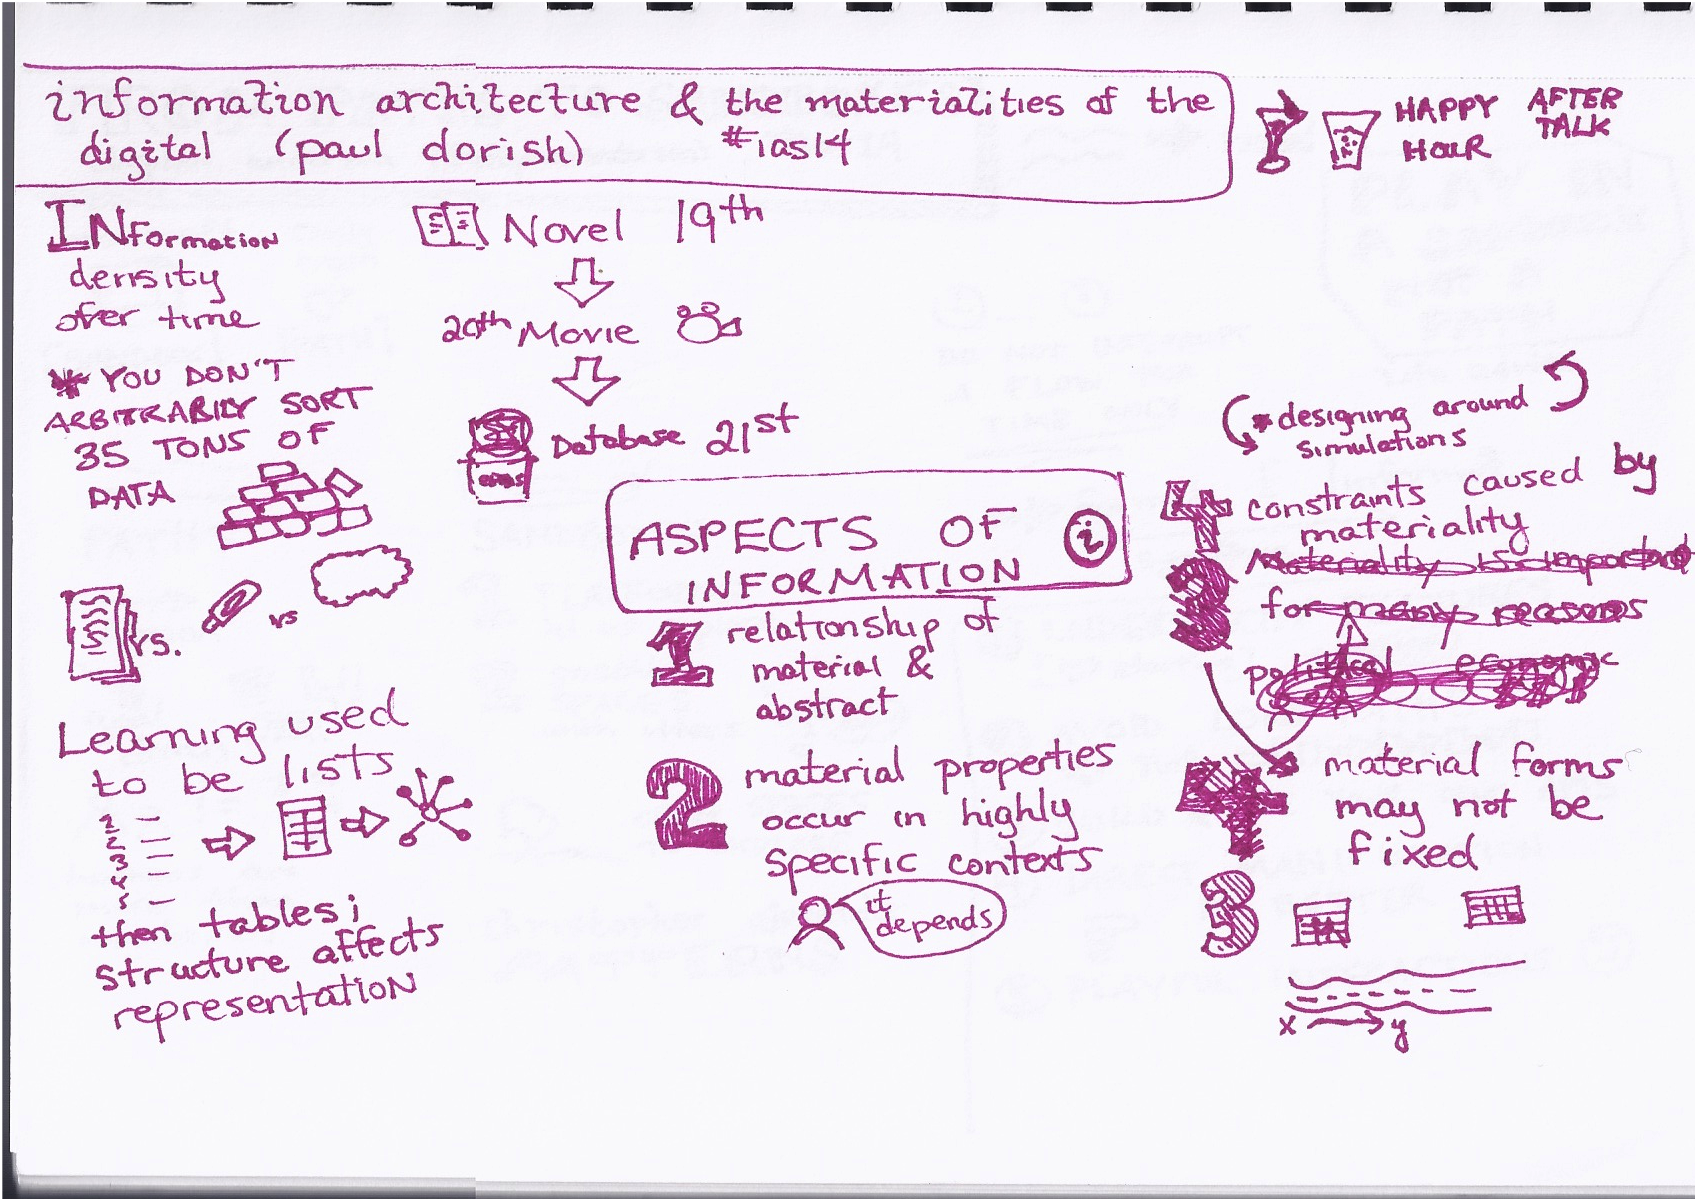 information architecture & the materialities of the
digital (paul dorish) #ias14
HAPPY
HOUR
AFTER
TALK
INFormation
density
over time
* YOU DON'T
ARBITRABILY SORT
35 TONS OF
DATA
vs.
vs
Learning used
to be lists
1 -
2 -
3 -
4 -
5 -
then tables;
structure affects
representation
Novel 19th
20th Movie
Database 21st
ASPECTS OF
INFORMATION
i
1 relationship of
material &
abstract
2 material properties
occur in highly
specific contexts
it
depends
* designing around
simulations
4 constraints caused by
materiality
materiality is important
for many reasons
political economic
material forms
may not be
fixed
3
x → y